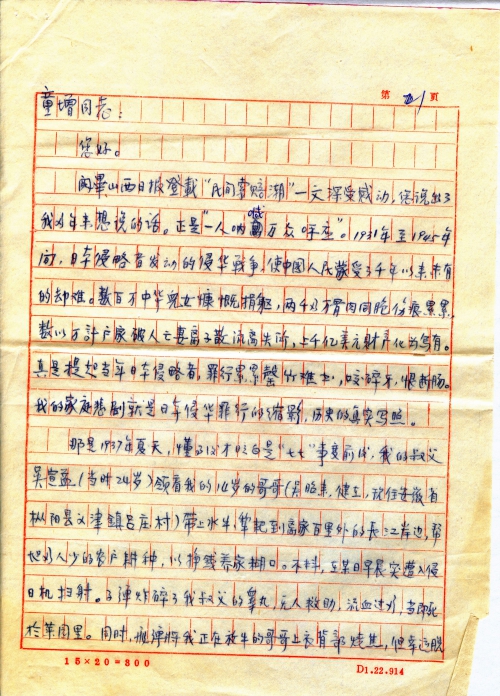 第 1 頁
童增同志：
您好。
阅毕山西日报登载“民间索赔潮”一文深受感动，您说出了
我多年来想说的话。正是“一人呐喊万众呼应”。1931年至1945年
间，日本侵略者发动的侵华战争，使中国人民蒙受了千年以来未有
的劫难。数百万中华儿女慷慨捐躯，两千多万骨肉同胞伤痕累累，
数以万計户家破人亡妻离子散流离失所，上千亿美元财产化为乌有。
真是提起当年日本侵略者，罪行累累罄竹难书，咬碎牙，恨断肠。
我的家庭悲剧就是日本侵华罪行的缩影，历史的真实写照。
那是1937年夏天，后才明白是“七七”事变前后，我的叔父
吴宣（当时24岁）领着我的14岁的哥哥（吴，健在，现住安徽省
枞阳县义津镇吕庄村）带上水牛，犁耙到离家百里外的长江岸边，帮
地多人少的农户耕种，以挣钱养家糊口。不料，至某日早晨突遭入侵
日机扫射。子弹炸碎了我叔父的睾丸，无人救助，流血过多，当即死
於菜园里。同时，弹将我正在放牛的哥哥上衣背部烧焦，但幸运脱
15×20＝300
D1.22.914